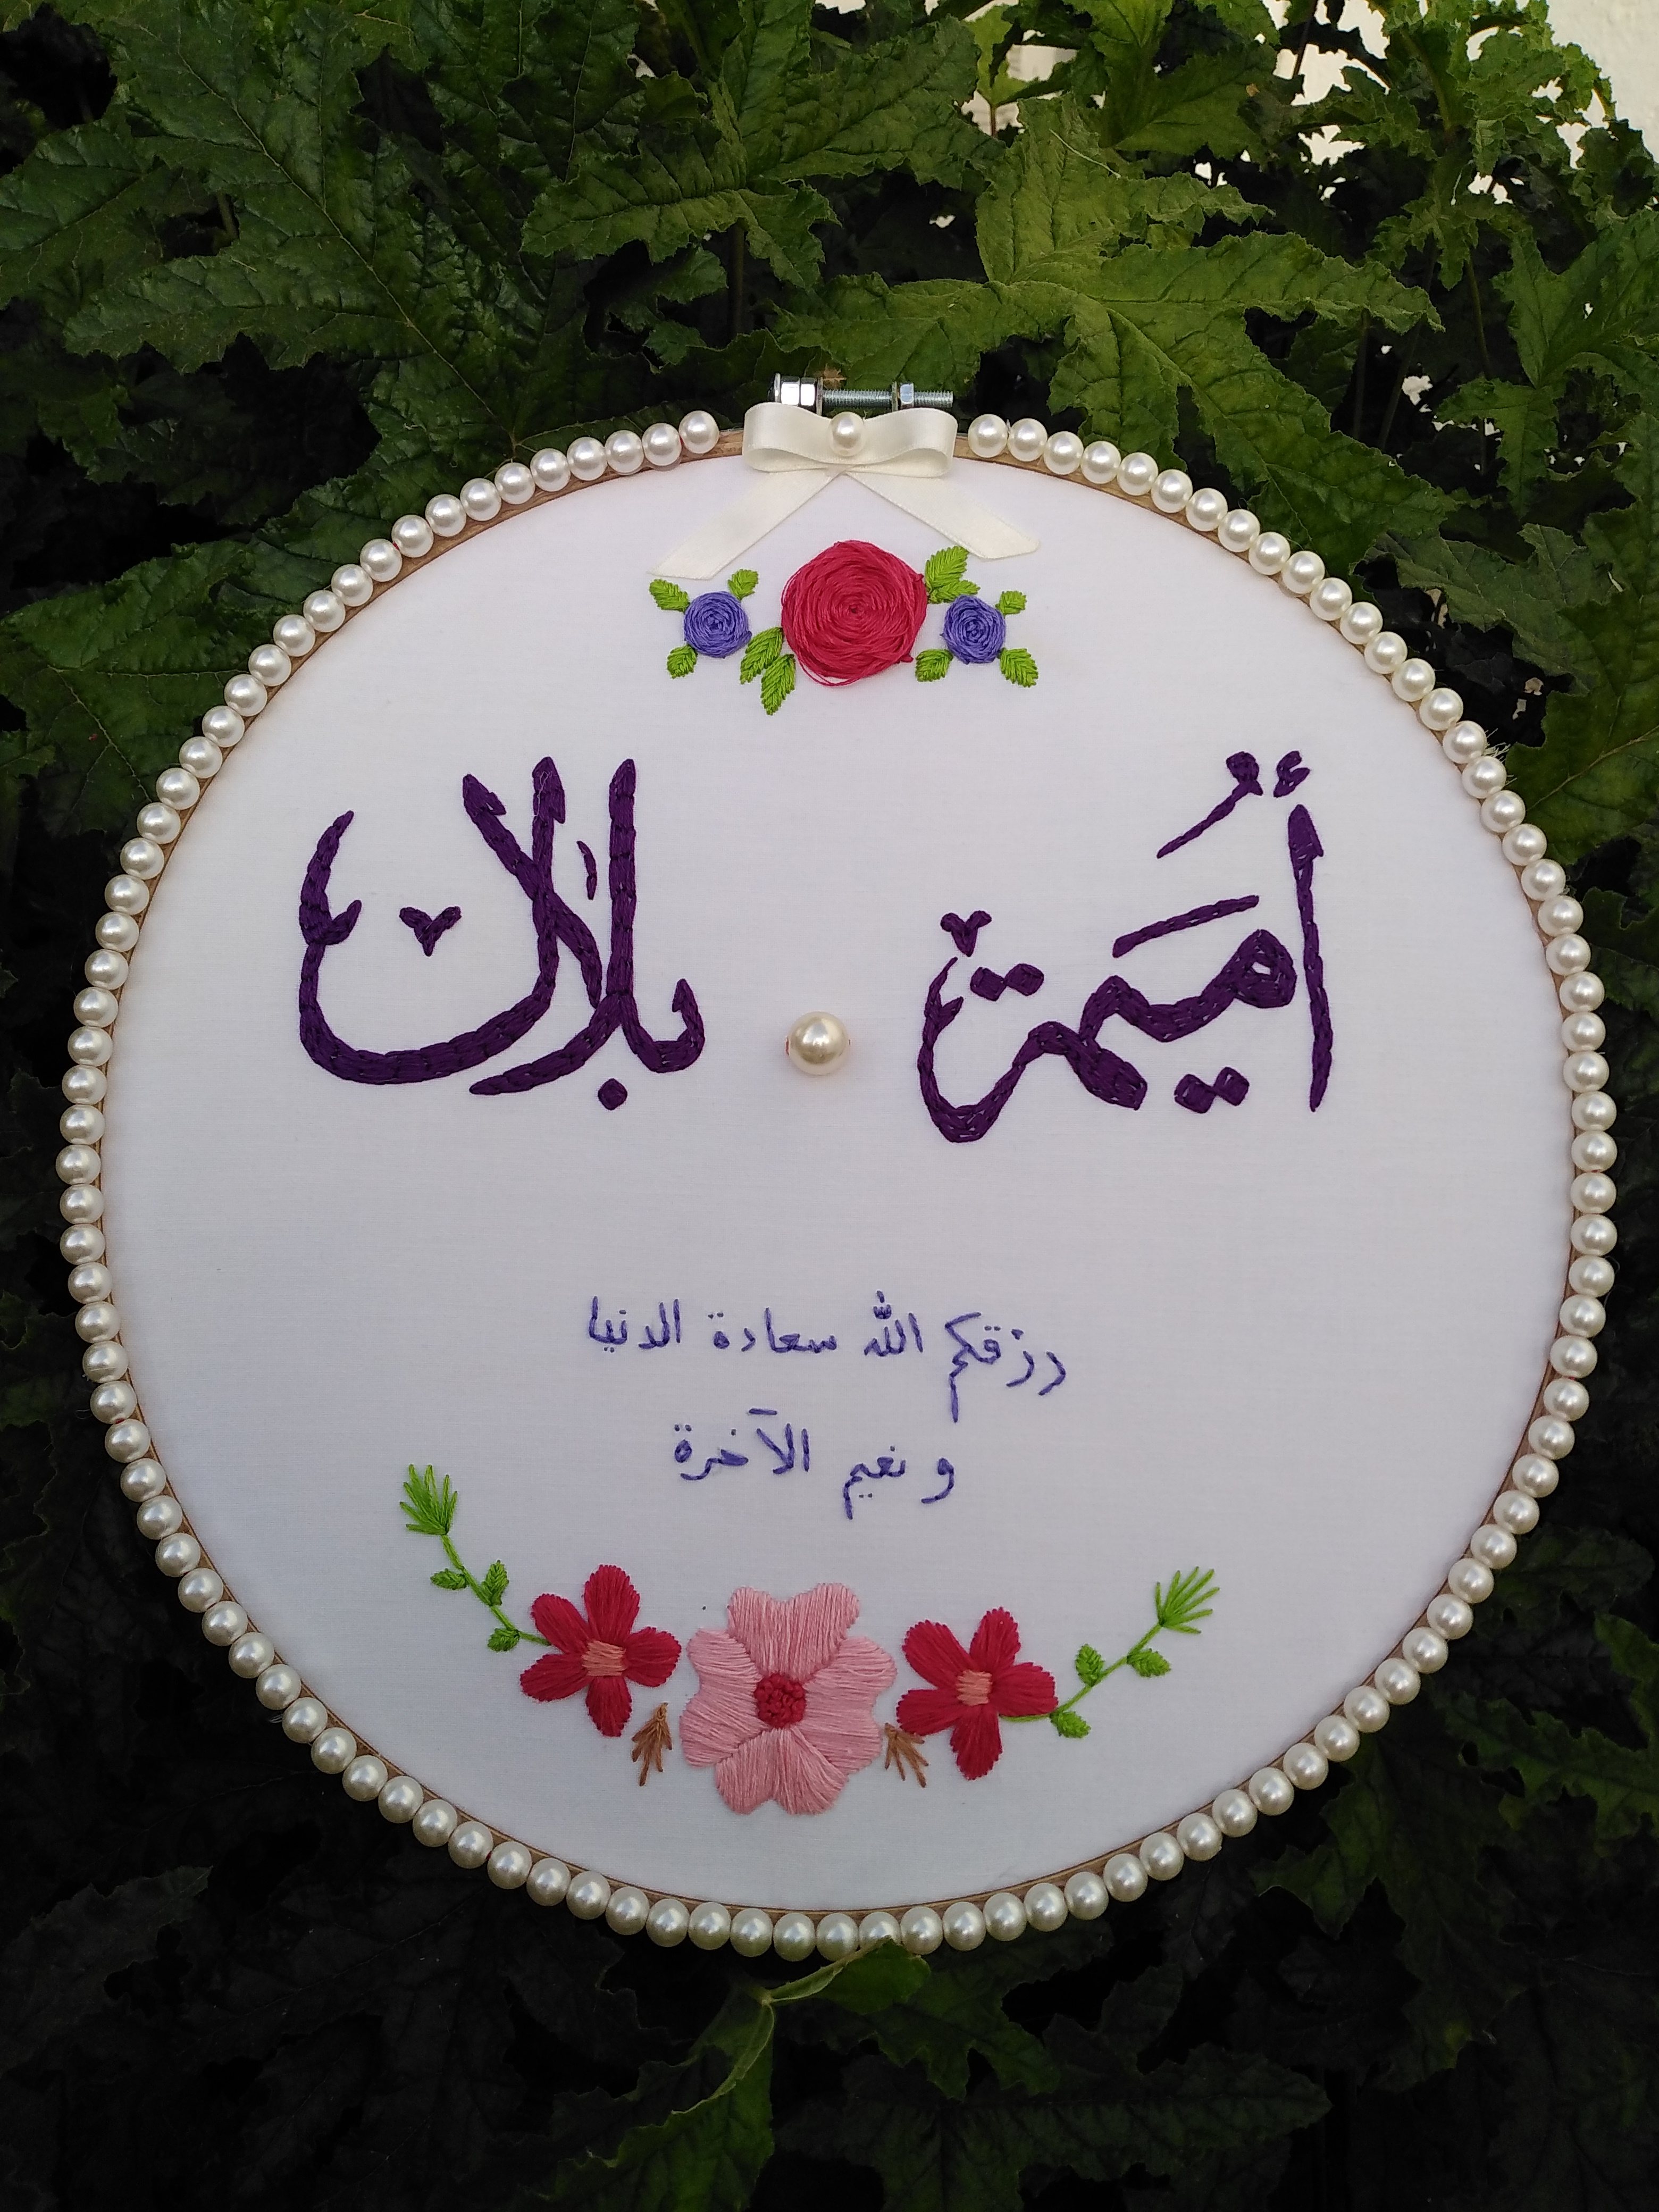 أُمَيمة بلال
رزقكم الله سعادة الدنيا
و نعيم الآخرة